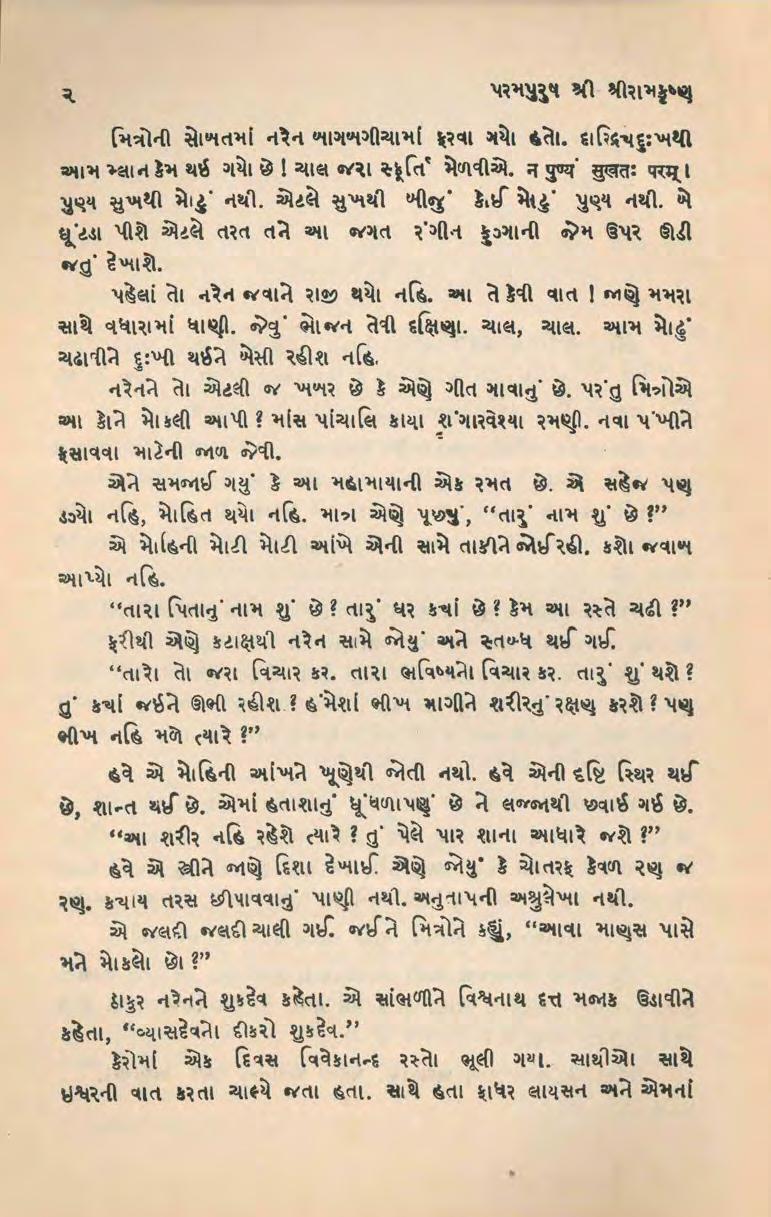 ૨
પરમપુરુષ શ્રી શ્રીરામકૃષ્ણ
મિત્રોની સોબતમાં નરેન બાગબગીચામાં ફરવા ગયો હતો. દારિદ્રયદુઃખથી
આમ મ્લાન કેમ થઈ ગયો છે ! ચાલ જરા સ્ફૂર્તિ મેળવીએ. न पुण्यं सुखतः परम् ।
પુણ્ય સુખથી મોટું નથી. એટલે સુખથી બીજું કોઈ મોટું પુણ્ય નથી. બે
ઘૂંટડા પીશે એટલે તરત તને આ જગત રંગીન ફુગ્ગાની જેમ ઉપર ઊડી
જતું દેખાશે.
પહેલાં તો નરેન જવાને રાજી થયો નહિ. આ તે કેવી વાત ! જાણે મમરા
સાથે વધારામાં ધાણી. જેવું ભોજન તેવી દક્ષિણા. ચાલ, ચાલ. આમ મોઢું
ચઢાવીને દુઃખી થઈને બેસી રહીશ નહિ.
નરેનને તો એટલી જ ખબર છે કે એણે ગીત ગાવાનું છે. પરંતુ મિત્રોએ
આ કોને મોકલી આપી ? માંસ પાંચાલિ કાયા શૃંગારવેશ્યા રમણી. નવા પંખીને
ફસાવવા માટેની જાળ જેવી.
એને સમજાઈ ગયું કે આ મહામાયાની એક રમત છે. એ સહેજ પણ
ડગ્યો નહિ, મોહિત થયો નહિ. માત્ર એણે પૂછ્યું, “તારું નામ શું છે ?”
એ મોહિની મોટી મોટી આંખે એની સામે તાકીને જોઈ રહી. કશો જવાબ
આપ્યો નહિ.
“તારા પિતાનું નામ શું છે ? તારું ઘર કયાં છે ? કેમ આ રસ્તે ચઢી ?”
ફરીથી એણે કટાક્ષથી નરેન સામે જોયું અને સ્તબ્ધ થઈ ગઈ.
“તારો તો જરા વિચાર કર. તારા ભવિષ્યનો વિચાર કર. તારું શું થશે ?
તું કયાં જઈને ઊભી રહીશ ? હંમેશાં ભીખ માગીને શરીરનું રક્ષણ કરશે ? પણ
ભીખ નહિ મળે ત્યારે ?”
હવે એ મોહિની આંખને ખૂણેથી જોતી નથી. હવે એની દૃષ્ટિ સ્થિર થઈ
છે, શાન્ત થઈ છે. એમાં હતાશાનું ધૂંધળાપણું છે ને લજ્જાથી છવાઈ ગઈ છે.
“આ શરીર નહિ રહેશે ત્યારે ? તું પેલે પાર શાના આધારે જશે ?”
હવે એ સ્ત્રીને જાણે દિશા દેખાઈ. એણે જોયું કે ચોતરફ કેવળ રણ જ
રણ. કયાય તરસ છીપાવવાનું પાણી નથી. અનુતાપની અશ્રુલેખા નથી.
એ જલદી જલદી ચાલી ગઈ. જઈને મિત્રોને કહ્યું, “આવા માણસ પાસે
મને મોકલો છો ?”
ઠાકુર નરેનને શુકદેવ કહેતા. એ સાંભળીને વિશ્વનાથ દત્ત મજાક ઉડાવીને
કહેતા, “વ્યાસદેવનો દીકરો શુકદેવ.”
કેરોમાં એક દિવસ વિવેકાનન્દ રસ્તો ભૂલી ગયા. સાથીઓ સાથે
ઇશ્વરની વાત કરતા ચાલ્યે જતા હતા. સાથે હતા ફાધર લાયસન અને એમનાં